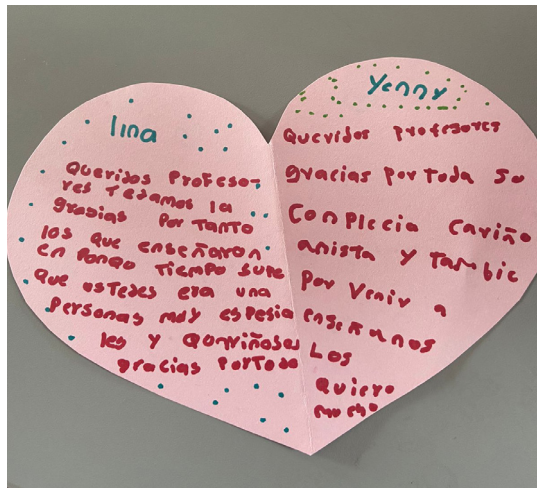 lina
Queridos Profeso-
res resamos la
grasias Por Tanto
los que enseñaron
en Pongo Tiempo supe
que ostedes era una
Personas muy espesia
les y Qorviñosas
gracias PorToda
Yenny
Queridos profesores
gracias por toda su
Complecia cariño
amista y Tambie
por venir a
enseñanos
Los
Quiero
mucho